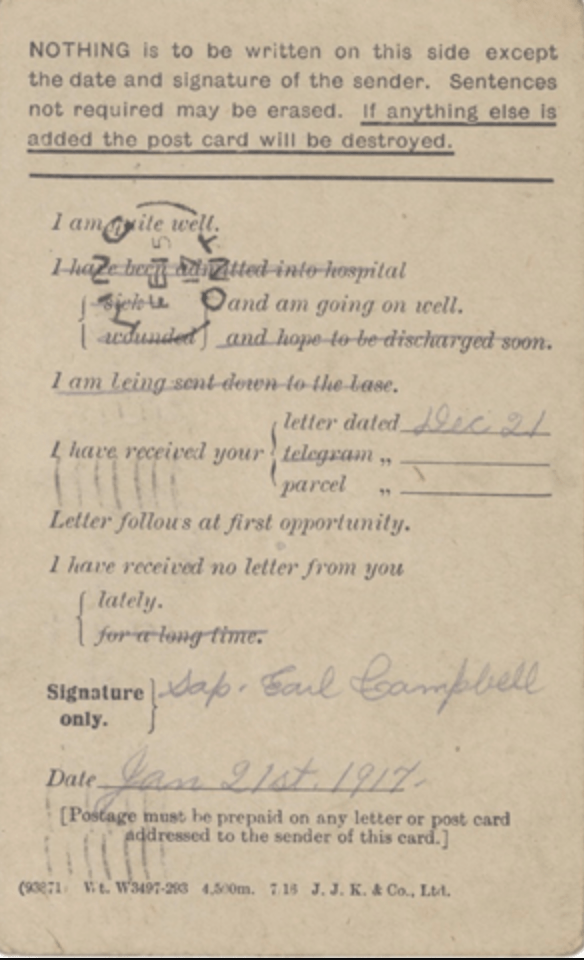 NOTHING is to be written on this side except
the date and signature of the sender. Sentences
not required may be erased. If anything else is
added the post card will be destroyed.
I am quite well.
I have been admitted into hospital
{ sick } and am going on well.
{ wounded } and hope to be discharged soon.
I am being sent down to the base.
I have received your { letter dated Dec 21
telegram „
parcel „
Letter follows at first opportunity.
I have received no letter from you
{ lately.
for a long time.
Signature only. } Sap. Earl Campbell
Date Jan 21st. 1917.
[Postage must be prepaid on any letter or post card
addressed to the sender of this card.]
(93871) Wt. W3497-293 4,500m. 7 16 J. J. K. & Co., Ltd.